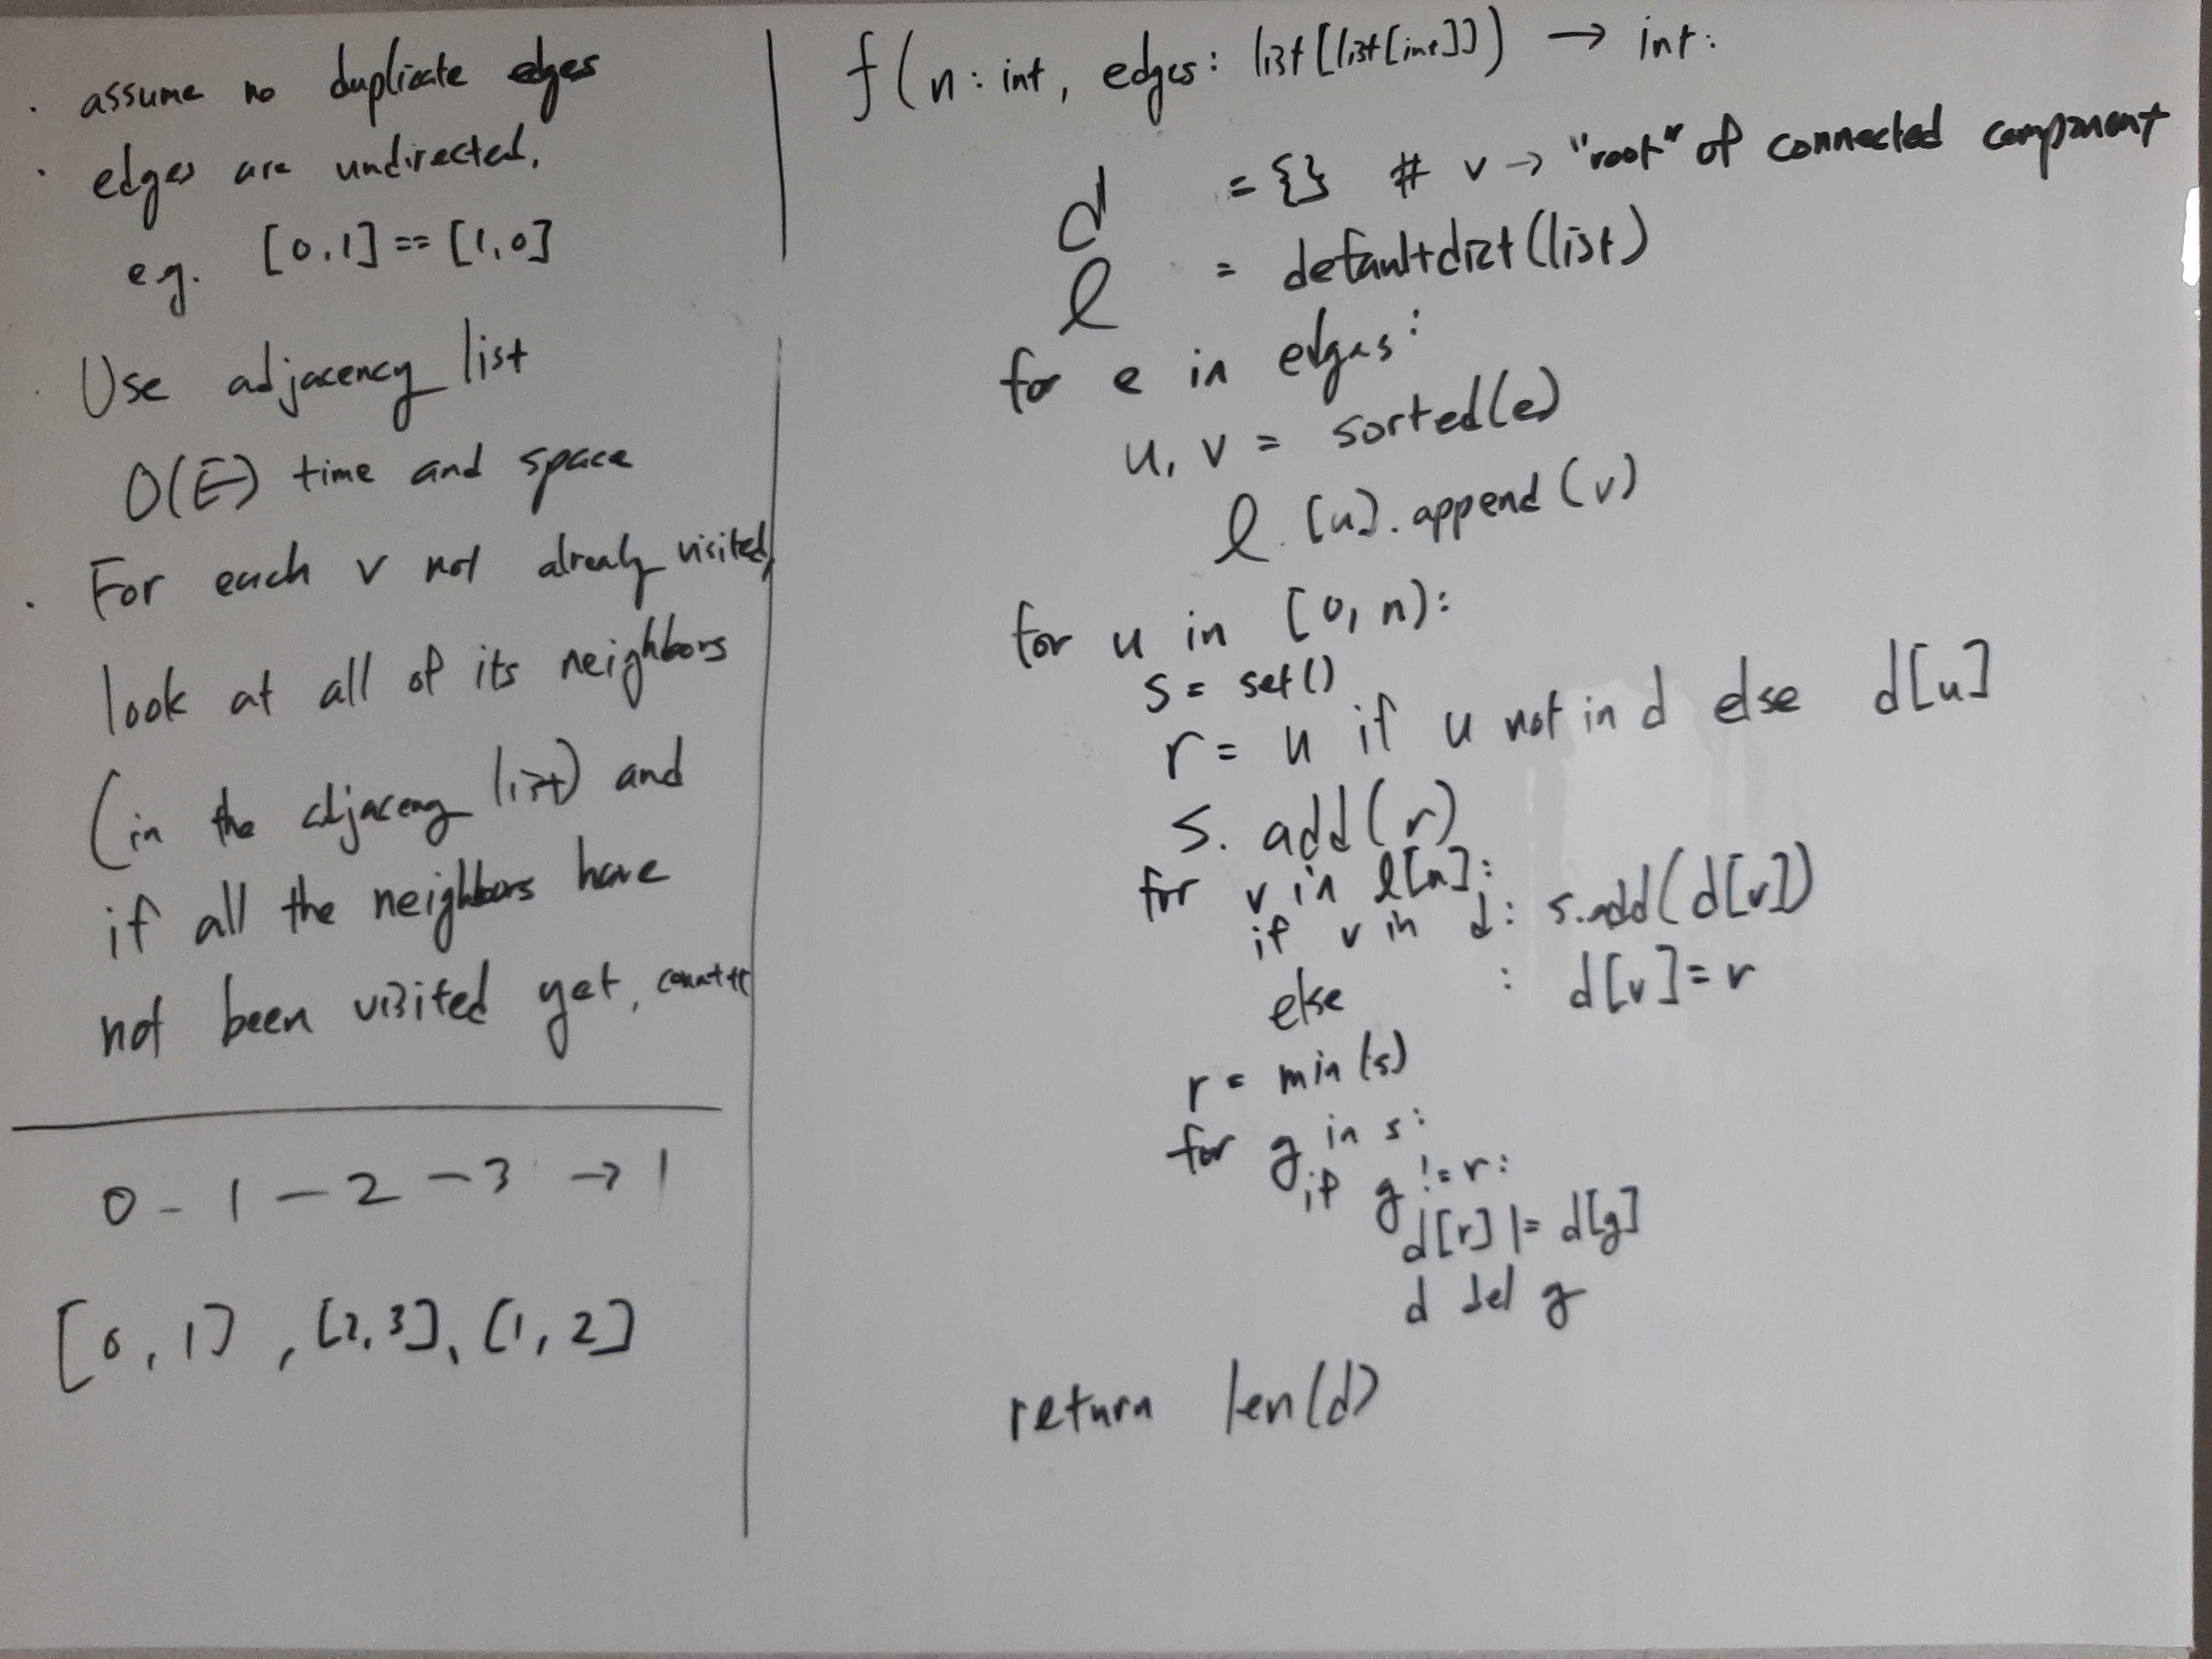 . assume no duplicate edges
. edges are undirected,
eg. [0,1] == [1,0]
. Use adjacency list
O(E) time and space
. For each v not already visited,
look at all of its neighbors
(in the adjacency list) and
if all the neighbors have
not been visited yet, count++
0 - 1 - 2 - 3 → 1
[0,1], [2,3], [1,2]
f(n: int, edges: list[list[int]]) → int:
d = {} # v → "root" of connected component
l = defaultdict(list)
for e in edges:
u, v = sorted(e)
l.[u].append(v)
for u in [0, n):
s = set()
r = u if u not in d else d[u]
s.add(r)
for v in l[u]:
if v in d: s.add(d[v])
else : d[v] = r
r = min(s)
for g in s:
if g != r:
d[r] |= d[g]
d del g
return len(d)